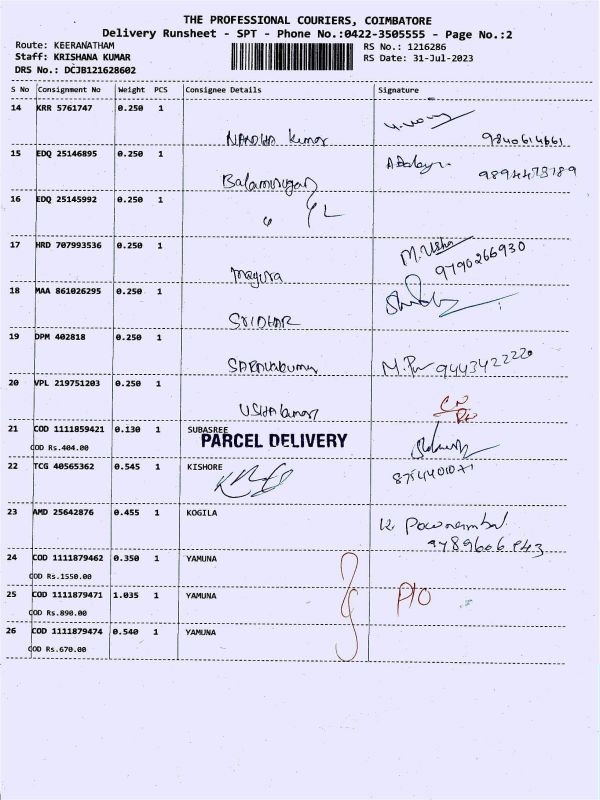 THE PROFESSIONAL COURIERS, COIMBATORE
Delivery Runsheet - SPT - Phone No.:0422-3505555 - Page No.:2
Route: KEERANATHAM
RS No.: 1216286
Staff: KRISHANA KUMAR
RS Date: 31-Jul-2023
DRS No.: DCJB121628602
S No Consignment No Weight PCS Consignee Details Signature
14 KRR 5761747 0.250 1
NANDHA Kumar
15 EDQ 25146895 0.250 1
Balamurugan
16 EDQ 25145992 0.250 1
17 HRD 707993536 0.250 1
M. Usha
9790266930
18 MAA 861026295 0.250 1
SRIDHAR
19 DPM 402818 0.250 1
9443422220
20 VPL 219751203 0.250 1
USHA kumar
21 COD 1111859421 0.130 1 SUBASREE
COD Rs.404.00
PARCEL DELIVERY
22 TCG 40565362 0.545 1 KISHORE
23 AMD 25642876 0.455 1 KOGILA
24 COD 1111879462 0.350 1 YAMUNA
COD Rs.1550.00
25 COD 1111879471 1.035 1 YAMUNA
COD Rs.890.00
P/O
26 COD 1111879474 0.540 1 YAMUNA
COD Rs.670.00